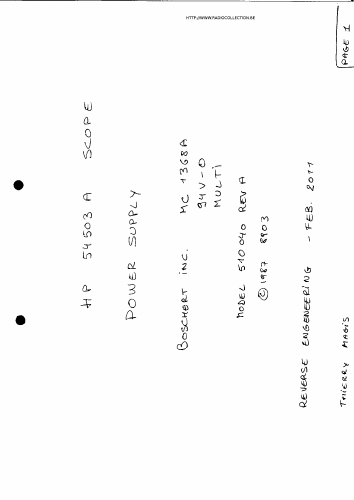 HTTP://WWW.RADIOCOLLECTION.BE
PAGE 1
HP 54503 A SCOPE
POWER SUPPLY
BOSCHERT INC. MC 1368A
94V-0
MULTI
MODEL 510040 REV A
© 1987 8903
REVERSE ENGENEERING - FEB. 2011
THIERRY MAGIS